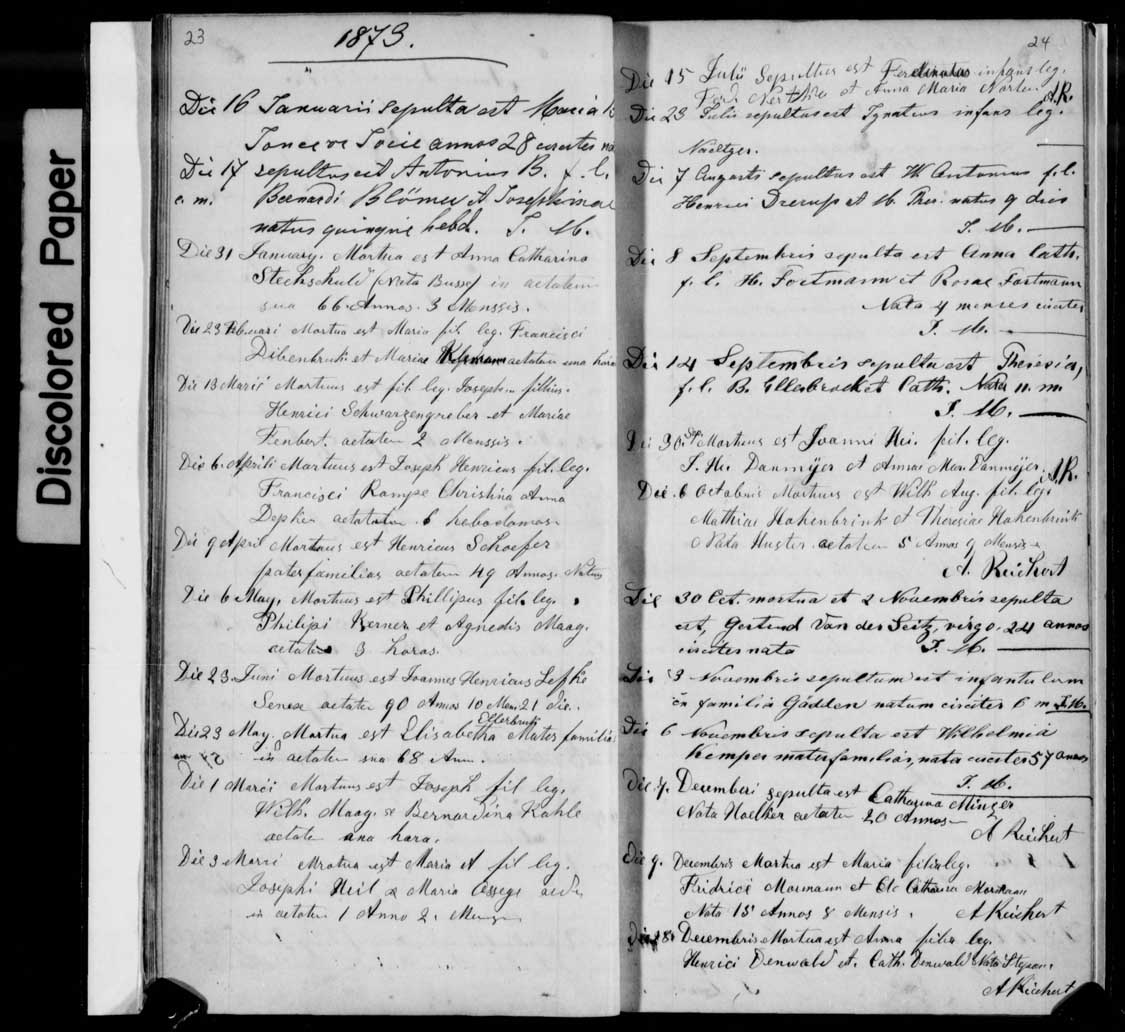 Discolored Paper
23
1873.
Die 16 Januarii sepulta est Maria
annos 28
Die 17 sepultus est Antonius B. f. l.
c. m. Bernardi Blömer et Josephinae
natus quinque hebd. J. M.
Die 31 January. Mortua est Anna Catharina
Steckschuld (Nata Busse) in aetatem
sua 66. Annos. 3 Menssis.
Die 23 Februari Mortua est Maria fil. leg. Francisci
et Mariae aetatem una hora
Die 13 Marii Mortuus est fil. leg. Joseph
Henrici Schwarzengreber et Mariae
aetatem 2 Menssis.
Die 6. Aprili Mortuus est Joseph Henricus fil. leg.
Francisci Rampe Christina Anna
Depker aetatem 6 hebodamos
Die 9 April Mortuus est Henricus Schoefer
paterfamilias aetatem 49 Annos. Natus
Die 6 May. Mortuus est Phillipus fil. leg.
Philipi Kerner et Agnedis Maag.
aetatem 3 horas.
Die 23. Juni Mortuus est Joannes Henricus Lefke
Senex aetatem 90 Annos 10 Men. 21 die.
Die 23 May. Mortua est Elisabetha Ellerbruk Mater familias
in aetatem sua 68 Ann.
Die 1 Marci Mortuus est Joseph fil leg.
Wilh. Maag. & Bernardina Kahle
aetatem una hora.
Die 3 Merci Mrotua est Maria A fil leg.
Josephi &
in aetatem 1 Anno 2. Mensis
24
Die 15 Julii Sepultus est Ferdinandus infans leg.
Ferd Nerthe et Anna Maria Norten A.R.
Die 23 Julii sepultus est Ignatius infans leg.
Naeltger.
Die 7 Augusti sepultus est W. Antonius f. l.
Henrici Dzerup et M. Ther. natus 9 dies
J. M.
Die 8 Septembris sepulta est Anna Cath.
f. l. H. Fortmann et Rosae Fortmann
Nata 4 menses circiter
J. M.
Die 14 Septembris sepulta est Theresia,
f. l. B. Ellerbrock et Cath. Nata 11. m.
J. M.
Die 30 Sep. Mortuus est Joanni He. fil. leg.
J. He. Danmijer et Annae Mar. Danmejer. A.R.
Die. 6 Octobris Mortuus est Wilh Aug. fil. leg.
Mathiae Hakenbrink et Theresiae Hakenbrink
Nata Huster. aetatem 5 Annos 9 Mensis
A. Reichert
Die 30 Oct. mortua et 2 Novembris sepulta
est, Gertrud Van der Seitz, virgo. 24 annos
circiter nata J. M.
Die 3 Novembris sepultum est infantulum
in familia Gädden natum circiter 6 m. J. M.
Die 6 Novembris sepulta est Wilhelmia
Kemper materfamilias, nata circiter 57 annos
J. M.
Die 7. Decemberi sepulta est Catharina Minzer
Nata Hoelker aetatem 20 Annos
A Reichert
Die 9. Decembris Mortua est Maria filia leg.
Fridrici Mormann et Catharina Mormann
Nata 15 Annos 8 Mensis. A Reichert
Die 28. Decembris Mortua est Anna filia leg.
Henrici Denwald et. Cath. Denwald Nata
A Reichert